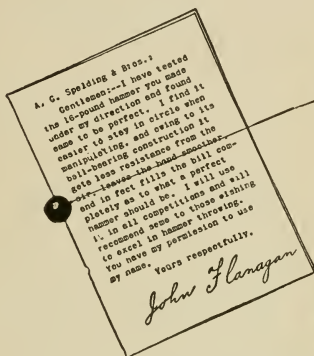 A. G. Spelding & Bros.:
Gentlemen:--I have tested
the 16-pound hammer you made
under my direction and found
same to be perfect. I find it
easier to stay in circle when
manipulating, and owing to its
ball-bearing construction it
gets less resistance from the
air, leaves the hand smoother,
and in fact fills the bill com-
pletely as to what a perfect
hammer should be. I will use
it in all competitions and will
recommend seme to those wishing
to excel in hammer throwing.
You have my permission to use
my name.
Yours respectfully,
John Flanagan